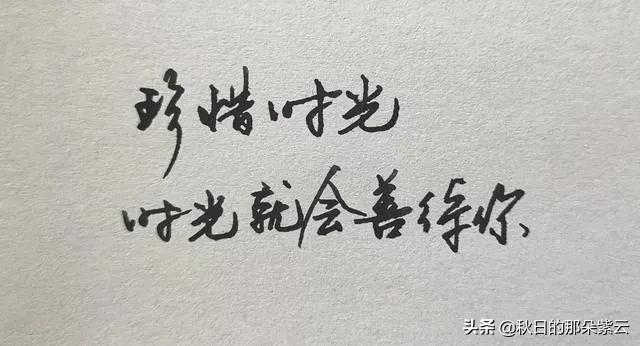 珍惜时光
时光就会善待你
头条 @秋日的那朵紫云